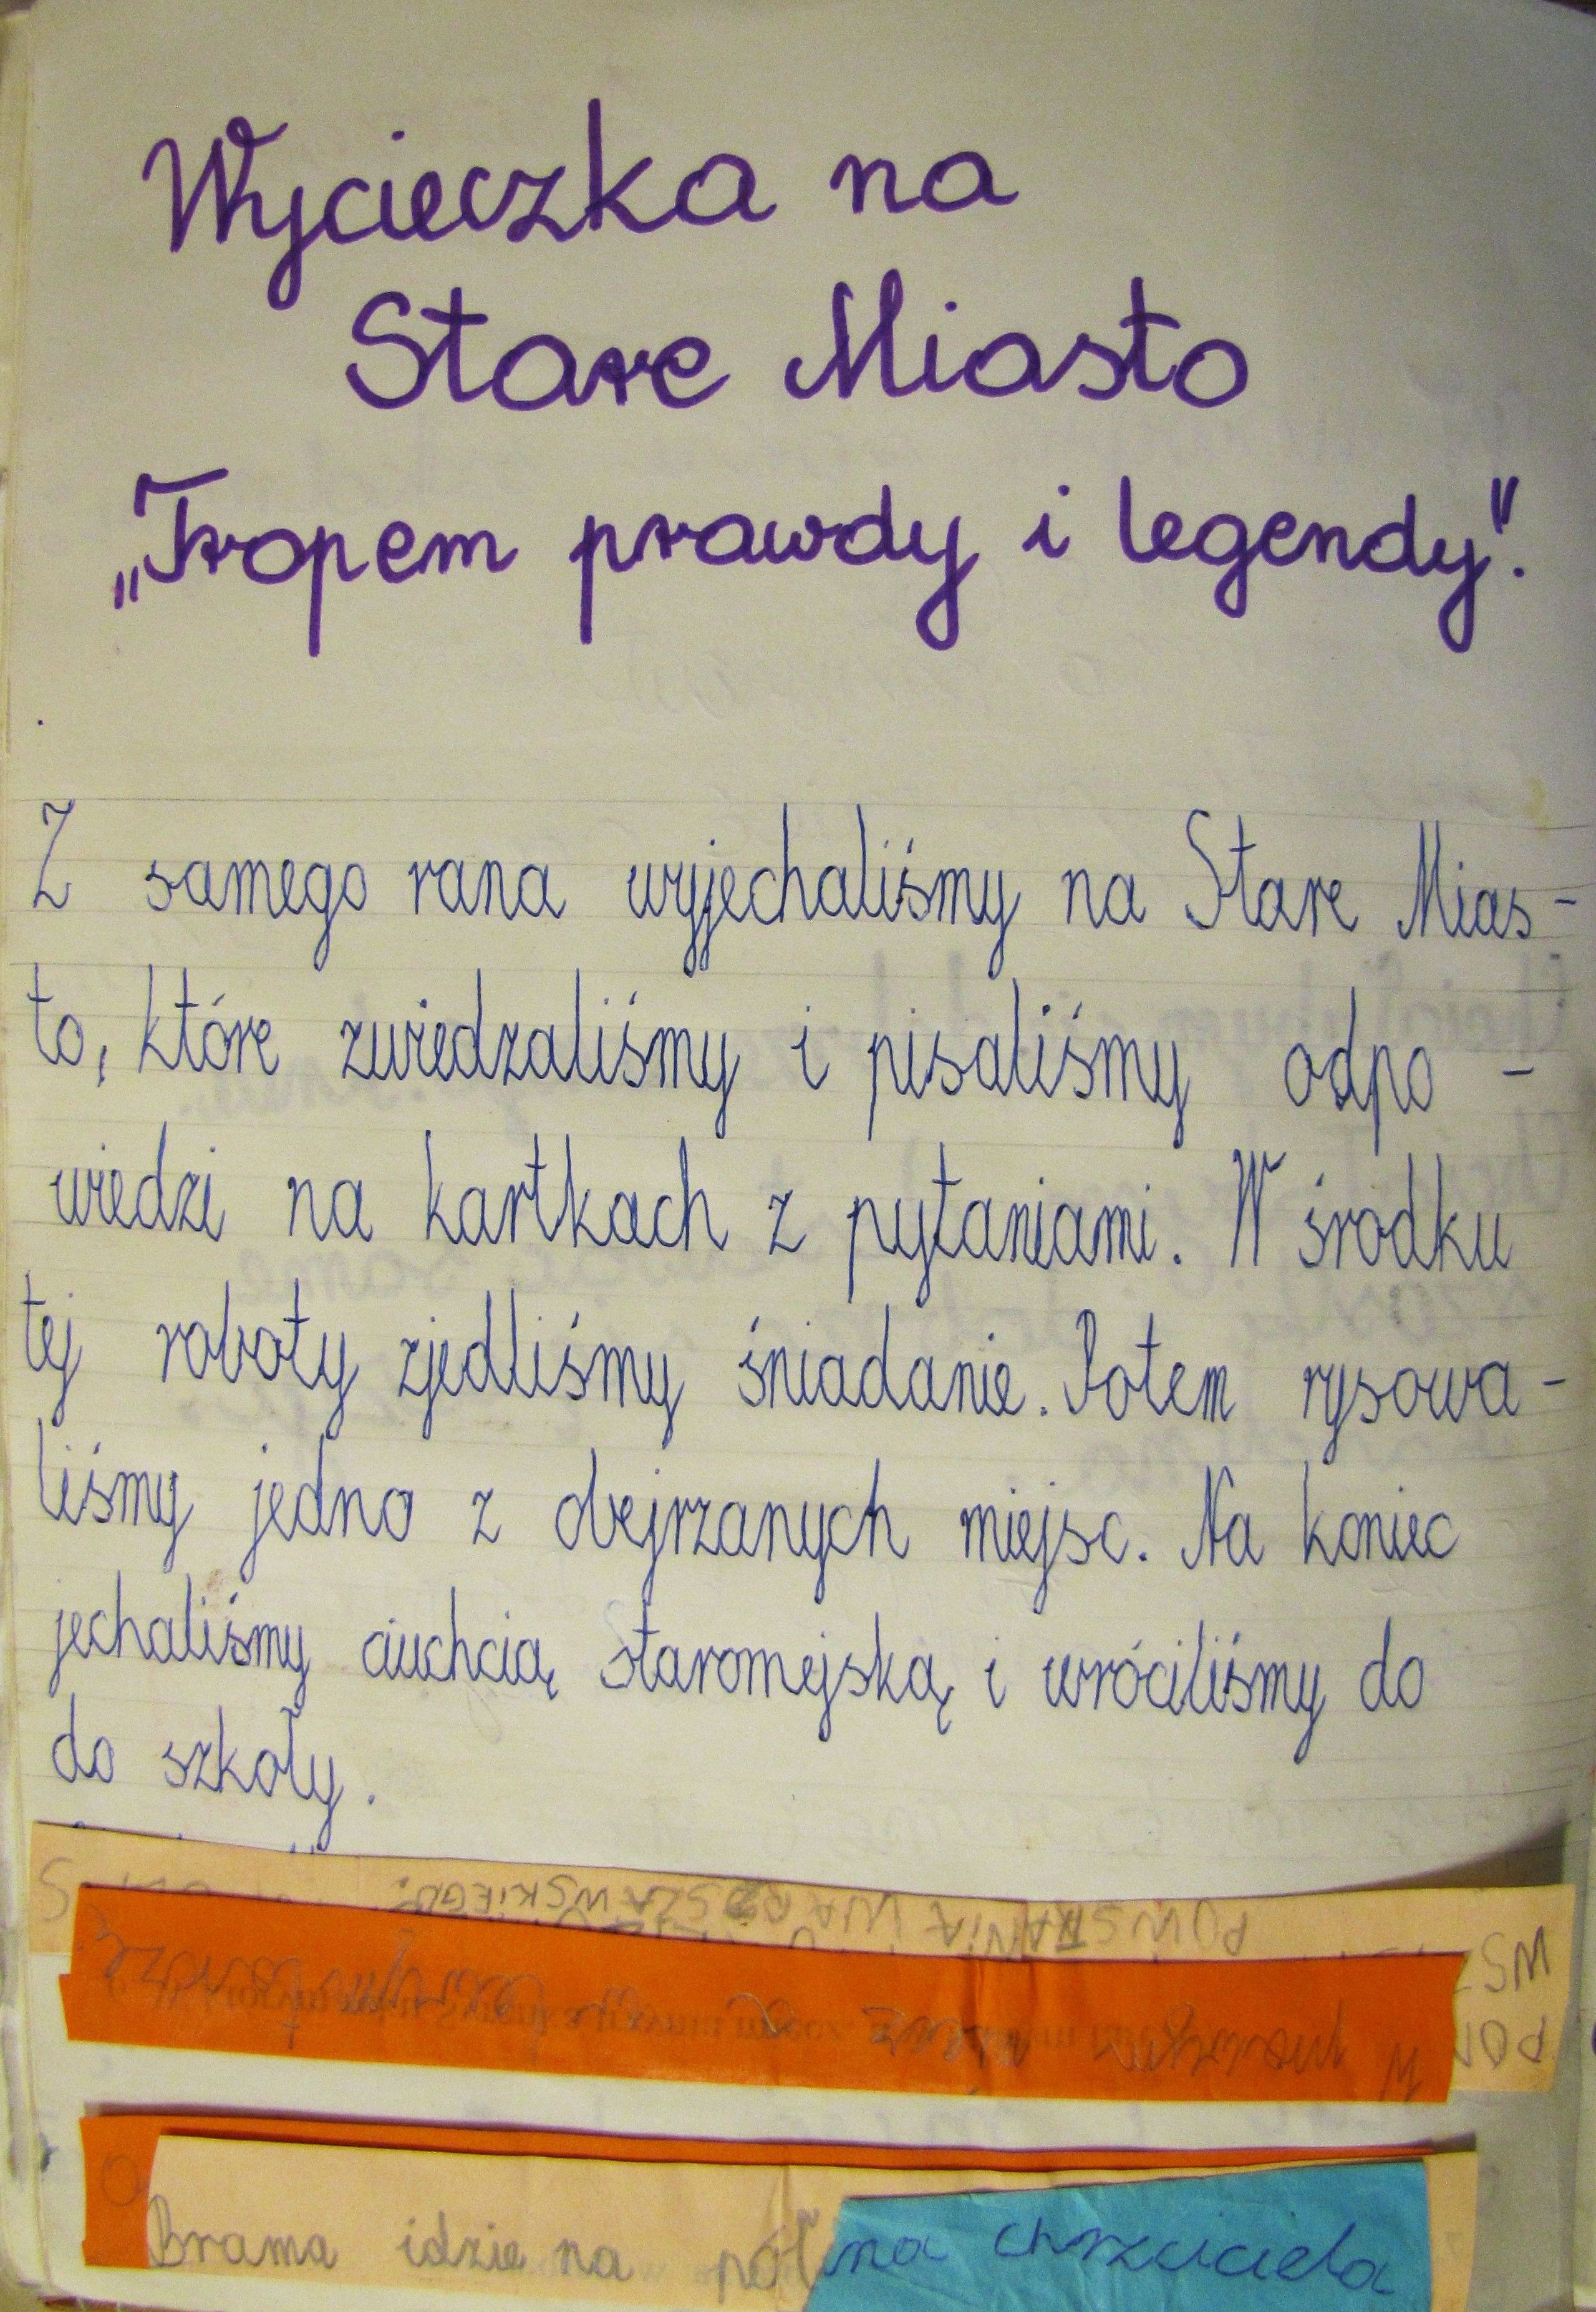 Wycieczka na
Stare Miasto
„Tropem prawdy i legendy".
Z samego rana wyjechaliśmy na Stare Mias-
to, które zwiedzaliśmy i pisaliśmy odpo -
wiedzi na kartkach z pytaniami. W środku
tej roboty zjedliśmy śniadanie. Potem rysowa-
liśmy jedno z obejrzanych miejsc. Na koniec
jechaliśmy ciuchcią staromejską i wróciliśmy do
do szkoły.
POWSTANIA WARSZAWSKIEGO.
Brama idzie na
na chrzciciela